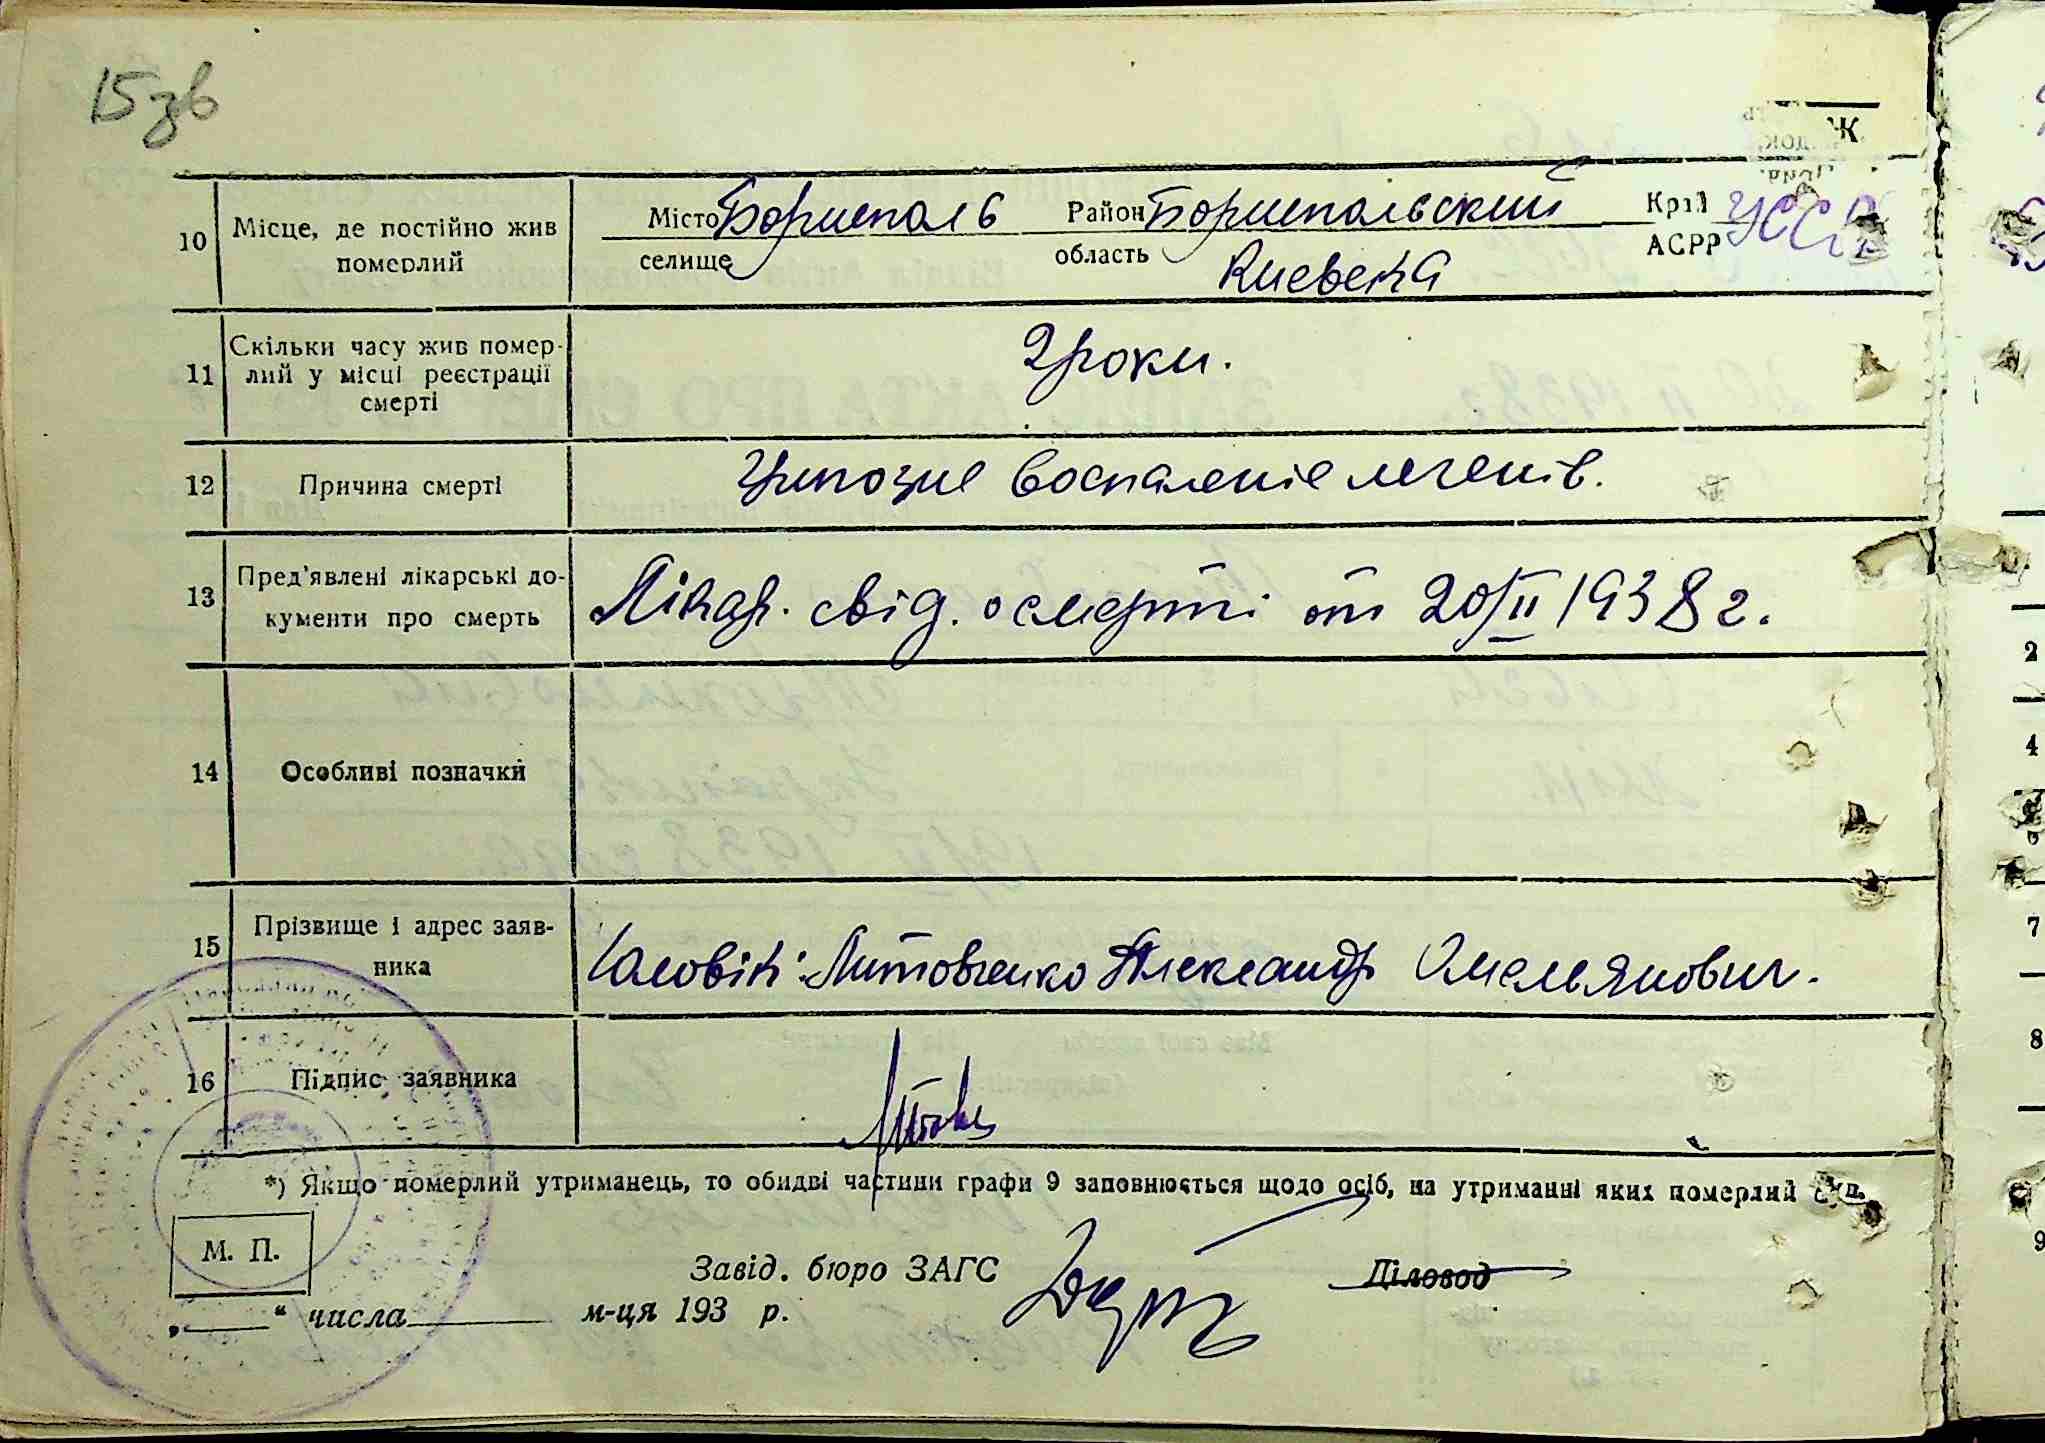 15зв
10 Місце, де постійно жив Місто Бориспол б Район Бориспольський Край УССР
померлий селище область Киевска АСРР
11 Скільки часу жив помер-
лий у місці реєстрації 2 роки.
смерті
12 Причина смерті воспаленіе легенів.
13 Пред'явлені лікарські до- Лікар. свід. о смерті от 20/II 1938 г.
кументи про смерть
14 Особливі позначки
15 Прізвище і адрес заяв- Чоловік: Литовченко Александр Омельянович.
ника
16 Підпис заявника
*) Якщо померлий утриманець, то обидві частини графи 9 заповнюється щодо осіб, на утриманні яких померлий був.
М. П.
Завід. бюро ЗАГС Діловод
„ “ числа м-ця 193 р.
2
4
7
8
9